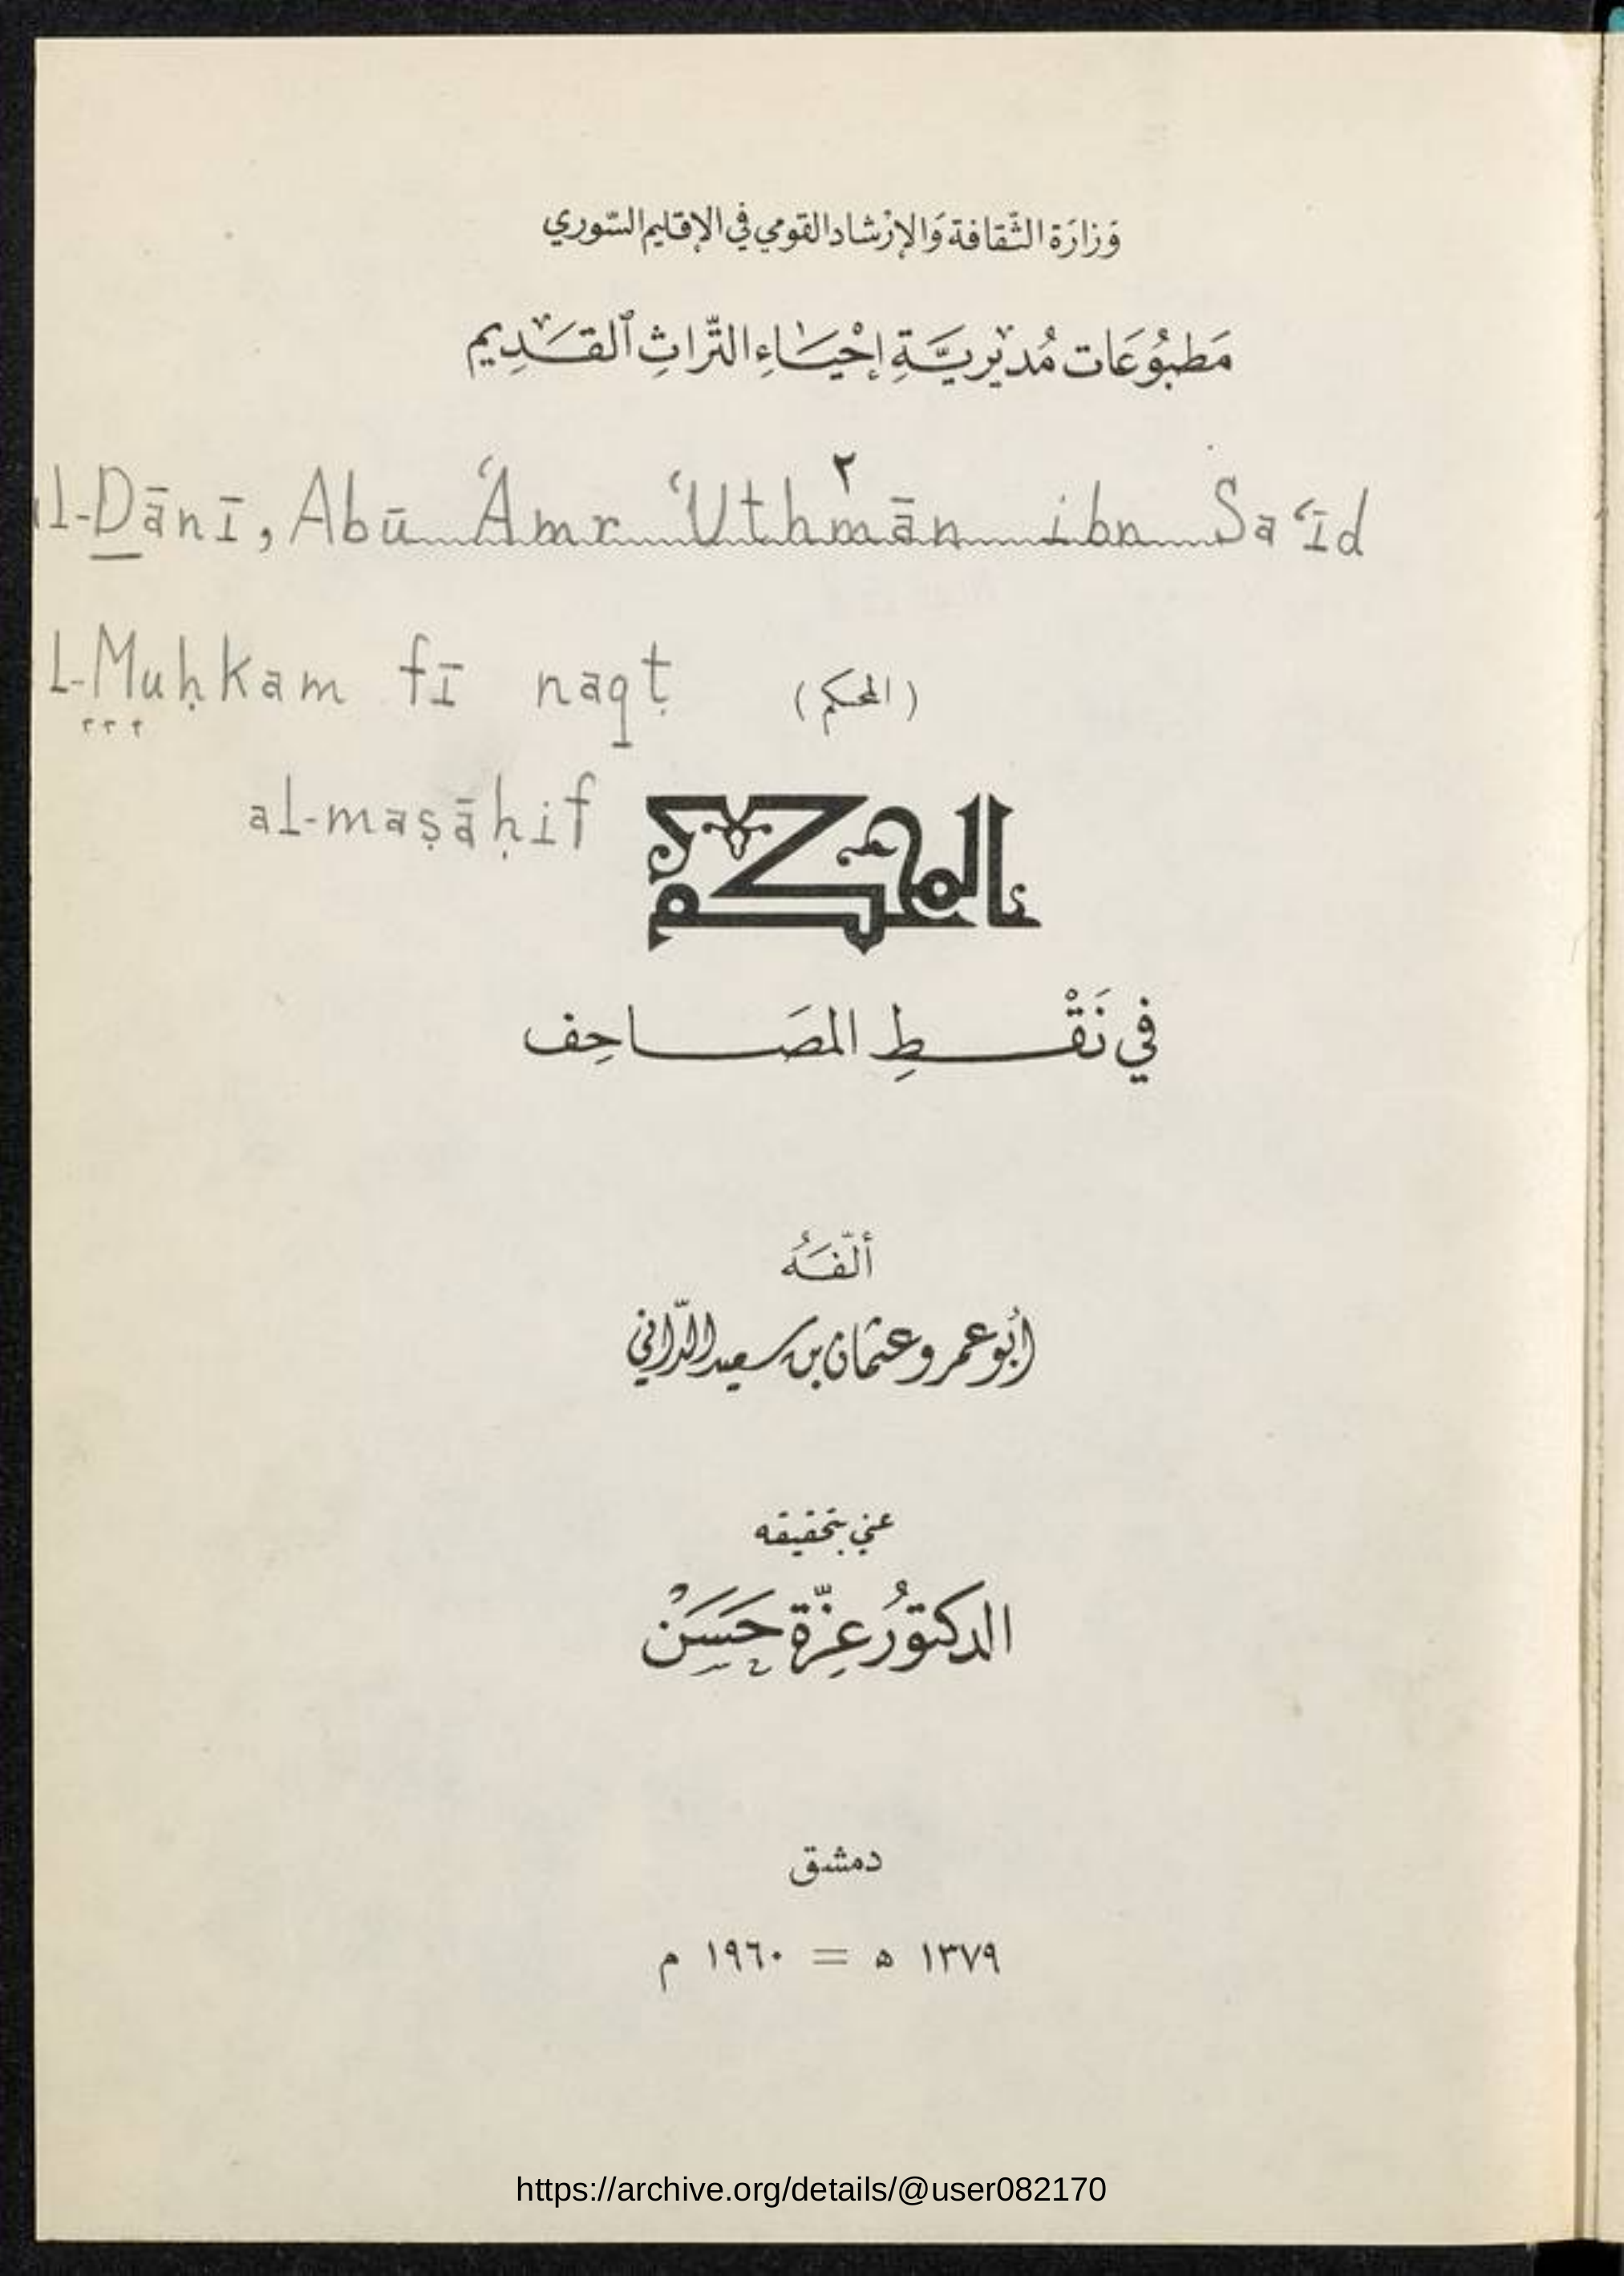 وَزارَة الثّقافة وَالإرْشاد القومي في الإقليم السّوري
مَطبُوعَات مُديريَّةِ إحْيَاءِ التّراثِ ٱلقَديم
٢
al-Dānī, Abū ʿAmr ʿUthmān ibn Saʿīd
L-Muḥkam fī naqṭ
(المحكم)
al-maṣāḥif
المحكم
في نَقْطِ المصَاحِف
ألّفَهُ
أبُو عمرو عثمان بن سعيد الدّاني
عني بتحقيقه
الدكتورُ عِزّة حَسَنْ
دمشق
١٣٧٩ ه = ١٩٦٠ م
https://archive.org/details/@user082170